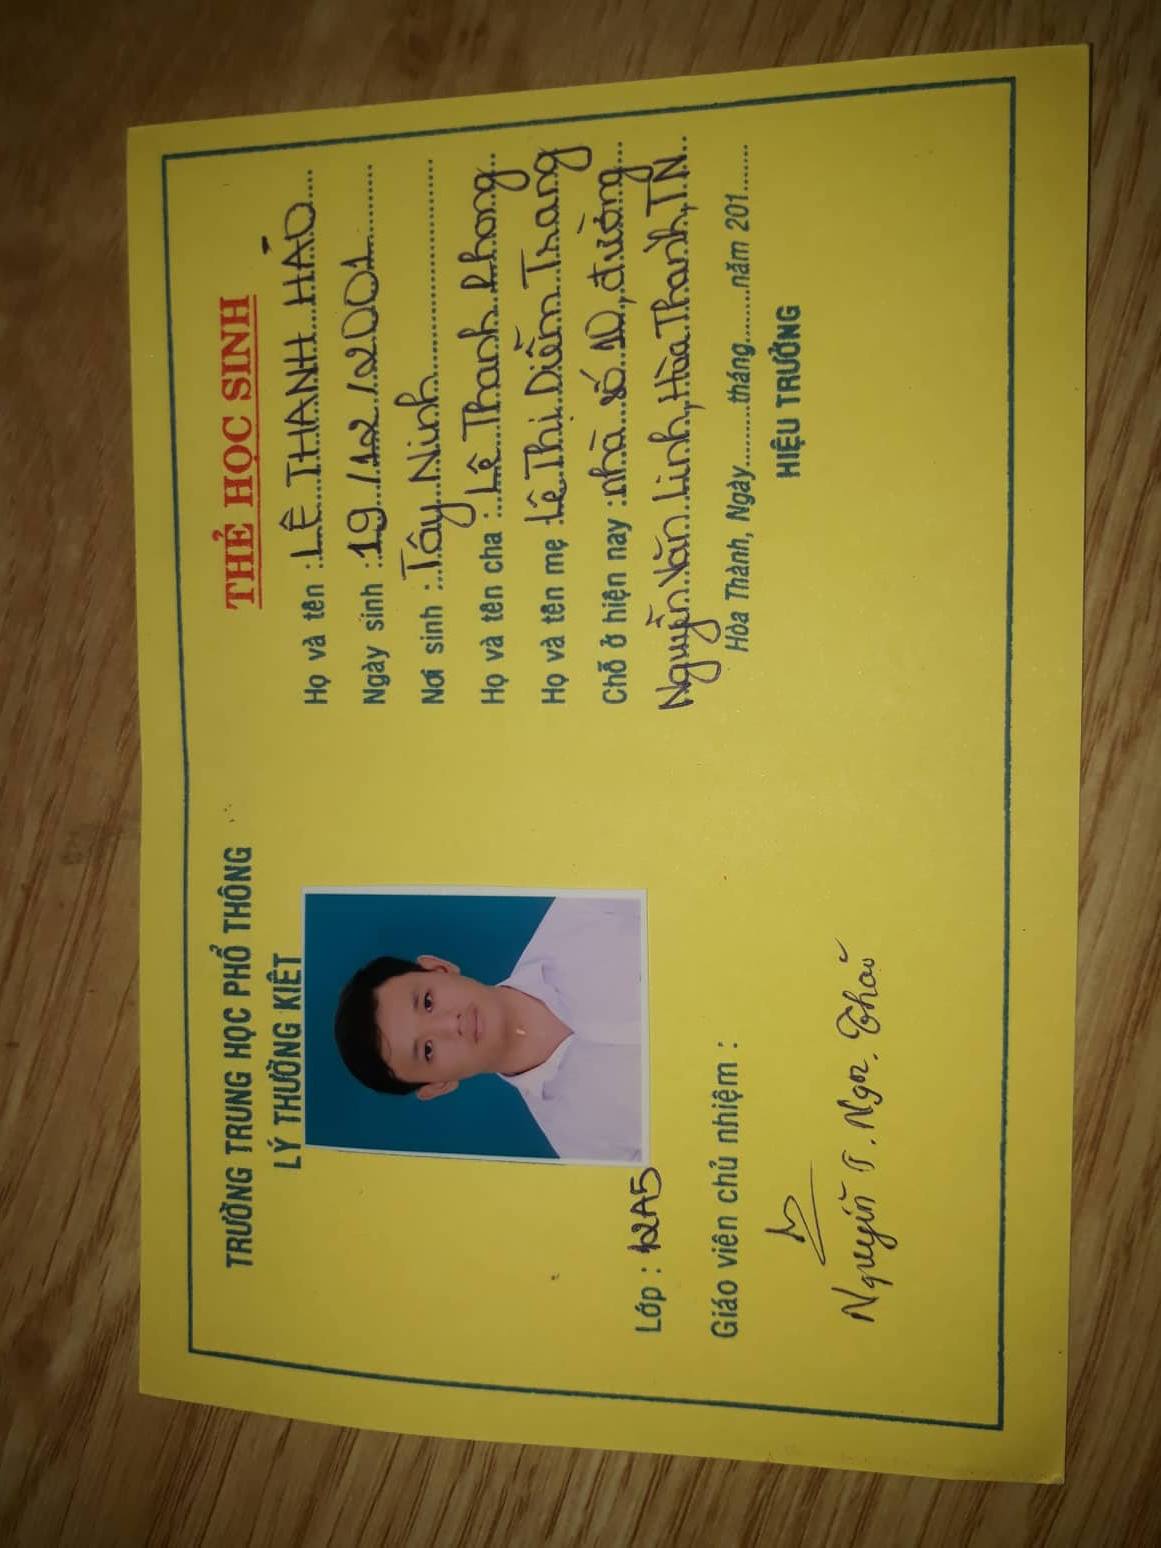 TRƯỜNG TRUNG HỌC PHỔ THÔNG
LÝ THƯỜNG KIỆT
Lớp : 12A5
Giáo viên chủ nhiệm :
Nguyễn T. Ngọc Thảo
THẺ HỌC SINH
Họ và tên : LÊ THANH HÀO
Ngày sinh : 19/12/2001
Nơi sinh : Tây Ninh
Họ và tên cha : Lê Thanh Phong
Họ và tên mẹ : Lê Thị Diễm Trang
Chỗ ở hiện nay : nhà số 10, đường
Nguyễn Văn Linh, Hòa Thành, TN
Hòa Thành, Ngày........tháng........năm 201......
HIỆU TRƯỞNG